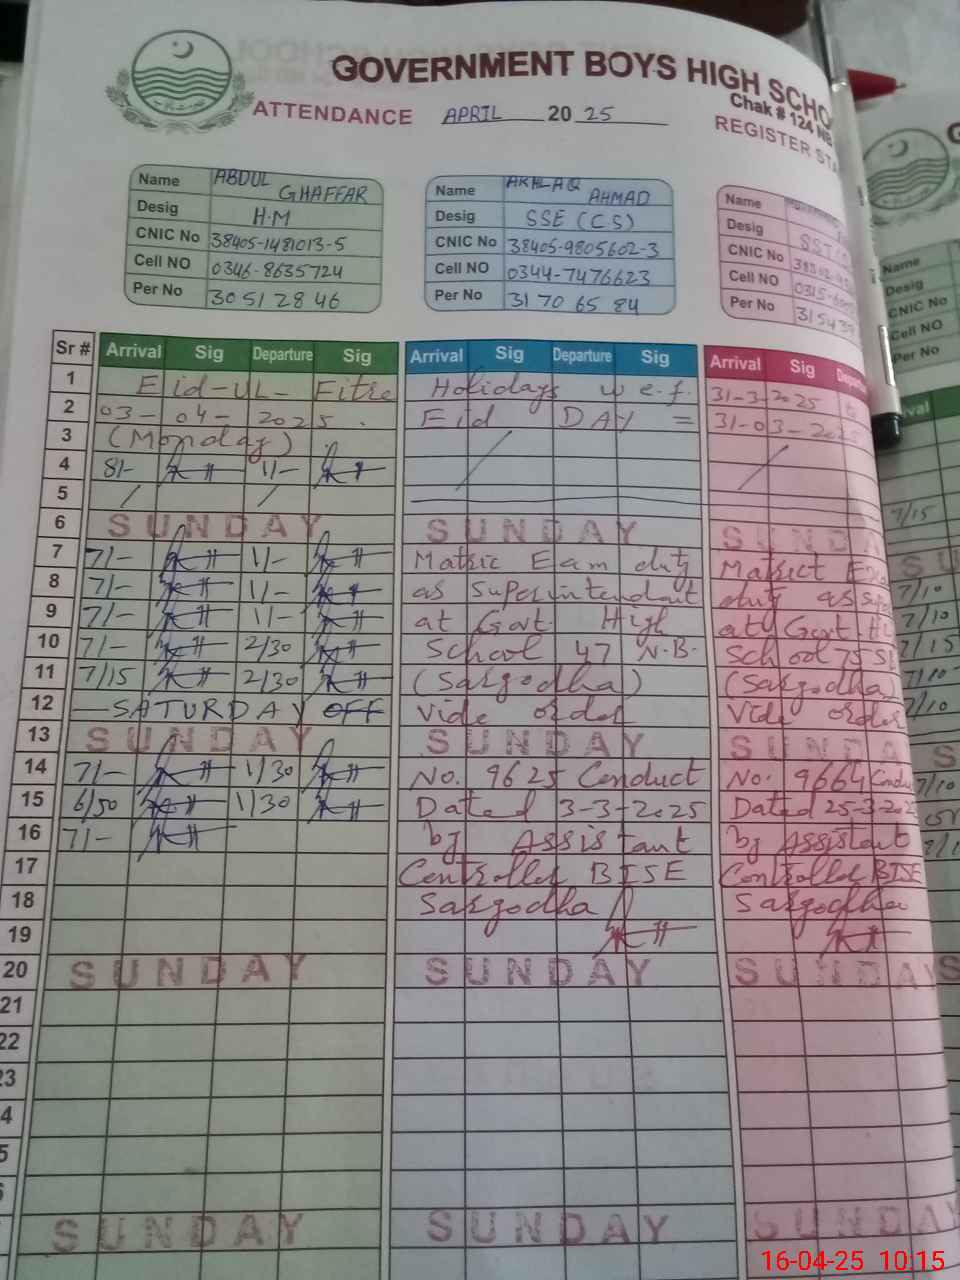 GOVERNMENT BOYS HIGH SCHO
Chak # 124 NB
ATTENDANCE APRIL 20 25
REGISTER STA
Name ABDUL GHAFFAR
Desig H.M
CNIC No 38405-1481013-5
Cell NO 0346-8635724
Per No 30512846
Name AKHLAQ AHMAD
Desig SSE (CS)
CNIC No 38405-9805602-3
Cell NO 0344-7476623
Per No 31706584
Name
Desig
CNIC No
Cell NO
Per No
Name
Desig
CNIC No
Cell NO
Per No
Sr # Arrival Sig Departure Sig Arrival Sig Departure Sig Arrival Sig Departu
1 Eid-UL-Fitre Holidays w.e.f. 31-3-2025 to
2 03-04-2025. Eid DAY = 31-03-2025
3 (Monday)
4 8/- 1/-
5
6 SUNDAY SUNDAY SUNDA
7 7/- 1/- Matric Exam duty Matrict Exa
8 7/- 1/- as Superintendant duty as supe 7/10
9 7/- 1/- at Govt. High at Govt. Hi 7/10
10 7/- 2/30 School 47 N.B. School 75 S 7/15
11 7/15 2/30 (Sargodha) (Sargodha 7/10
12 SATURDAY OFF Vide order Vide order 7/10
13 SUNDAY SUNDAY SUNDA S
14 7/- 1/30 No. 9625 Conduct No. 9664 Condu 7/10
15 6/50 1/30 Dated 3-3-2025 Dated 25-3-202
16 7/- by Assistant by Assistant
17 Controller BISE Controller BISE
18 Sargodha Sargodha
19
20 SUNDAY SUNDAY SUNDAY S
21
22
23
4
5
SUNDAY SUNDAY SUNDAY
16-04-25 10:15